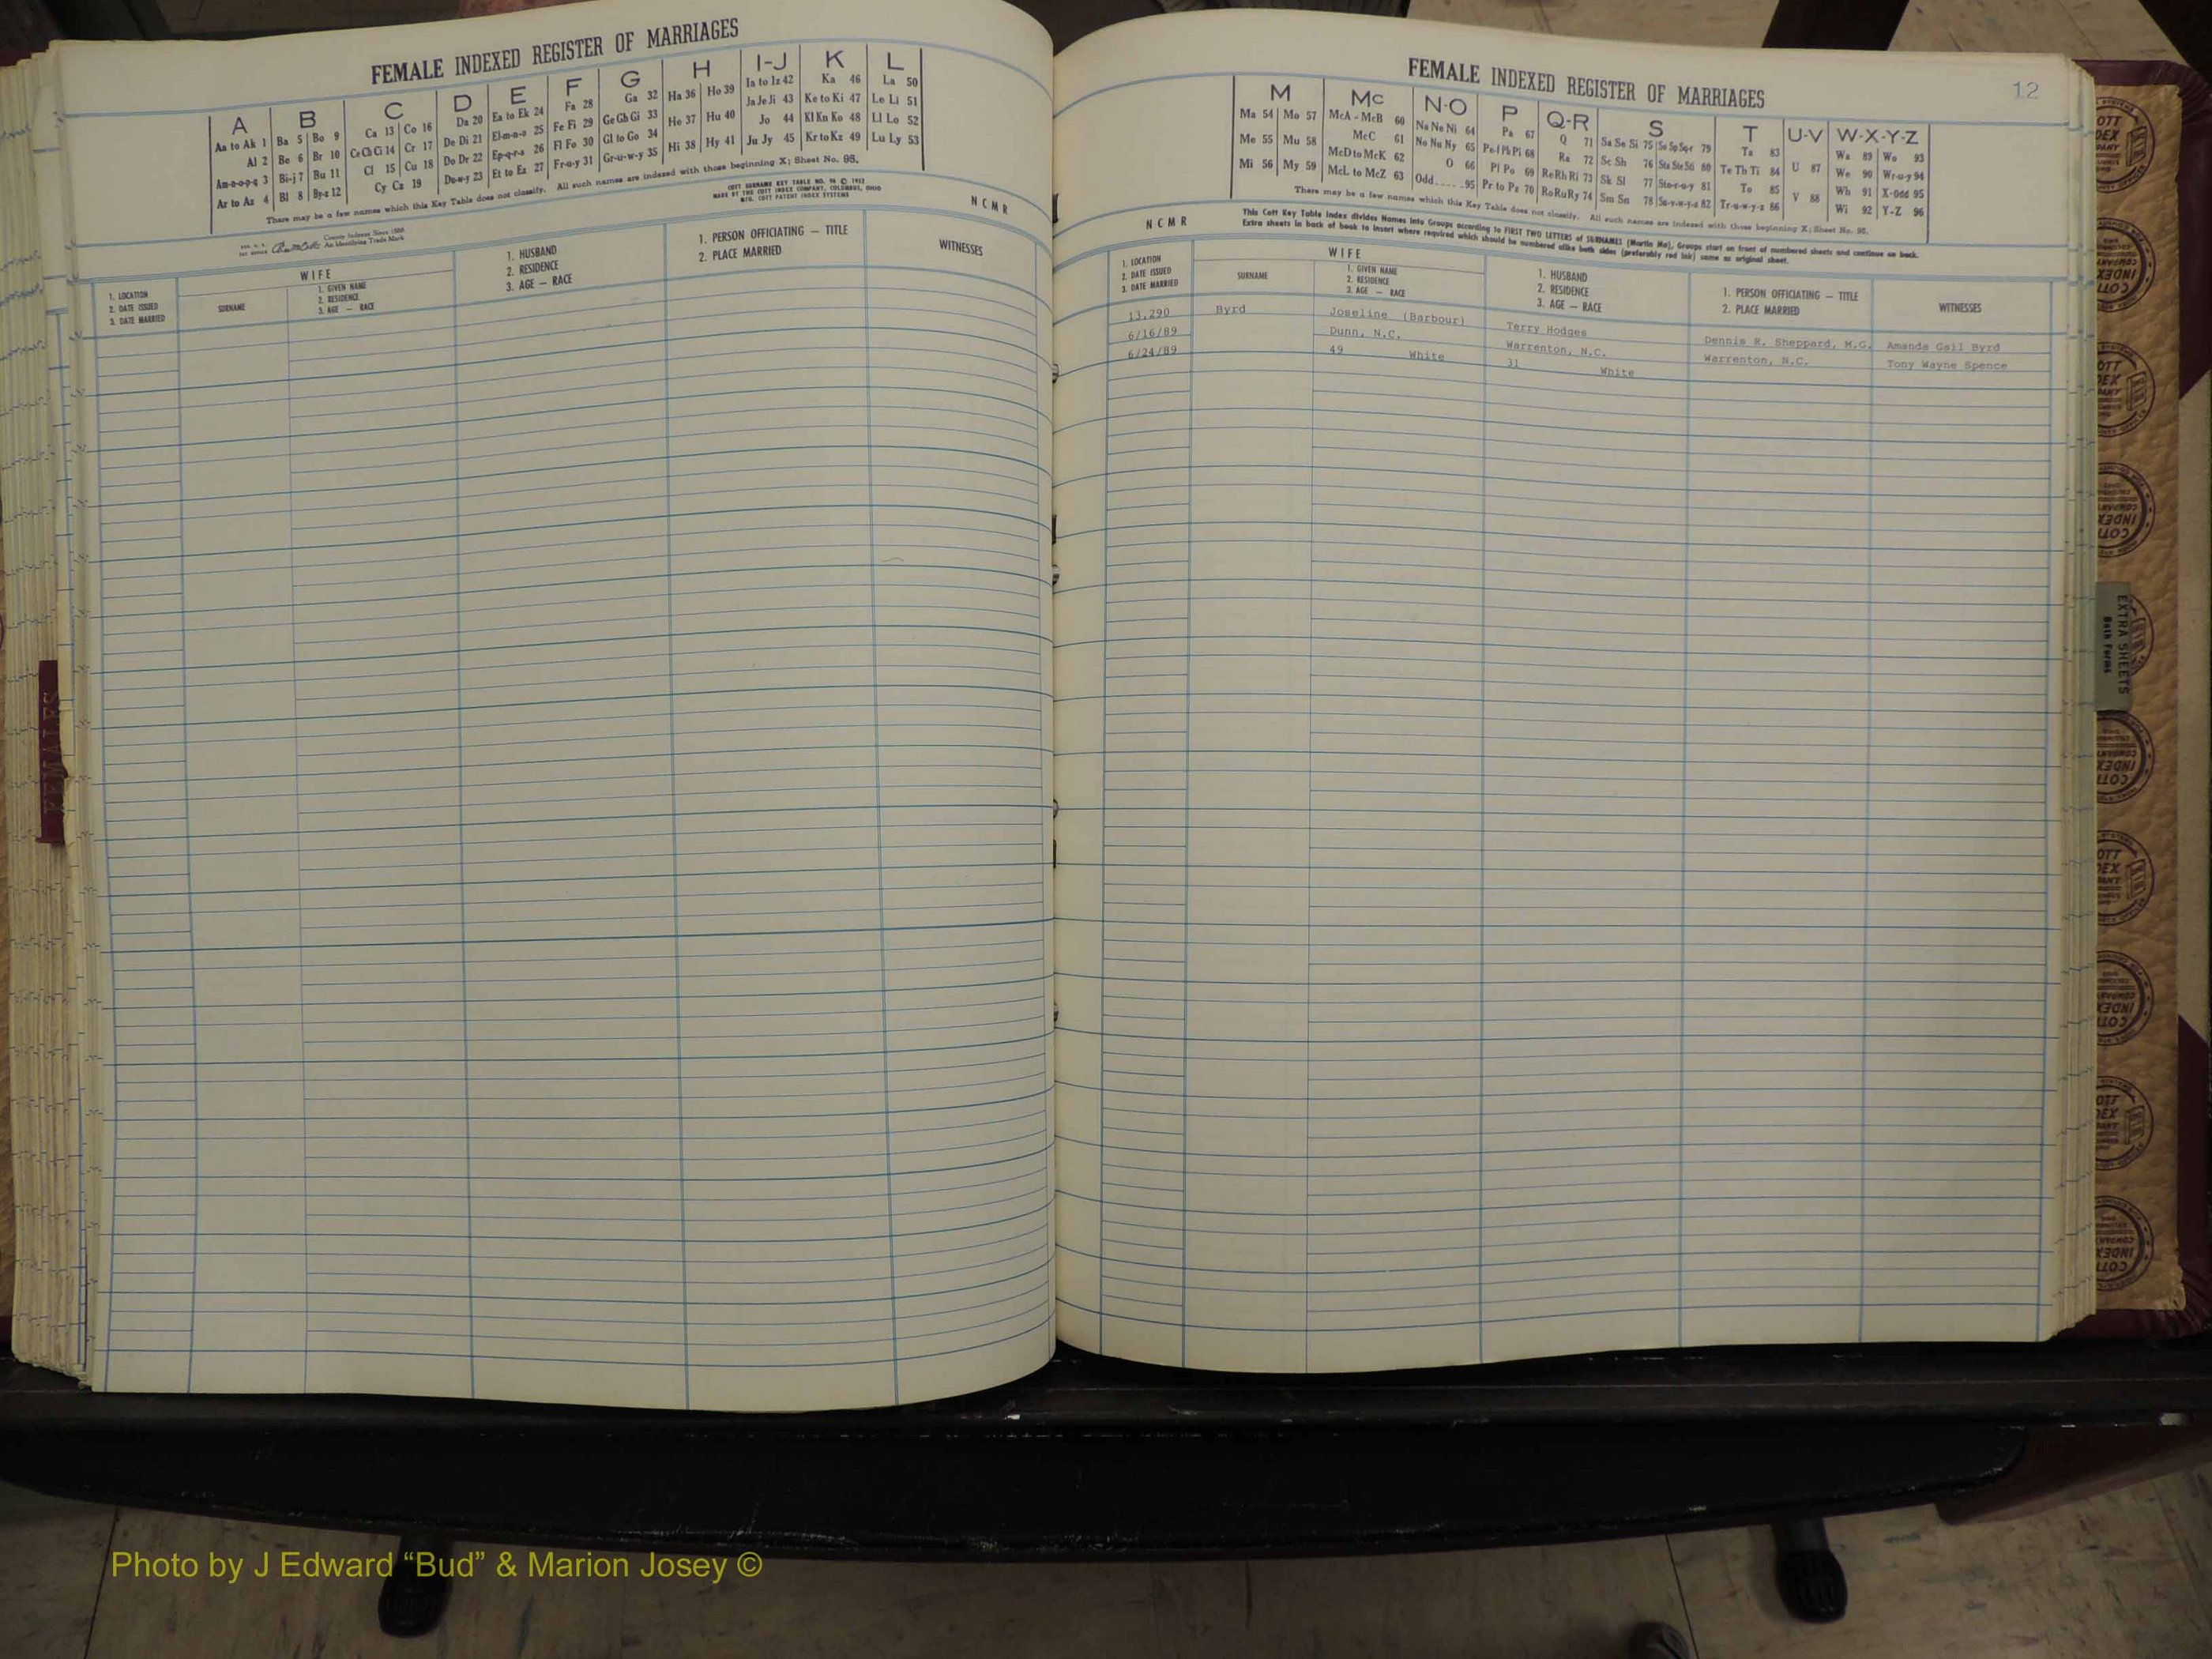 FEMALE INDEXED REGISTER OF MARRIAGES
A B C D E F G H I-J K L
Aa to Ak 1 Ba 5 Bo 9 Ca 13 Co 16 Da 20 Ea to Ek 24 Fa 28 Ga 32 Ha 36 Ho 39 Ia to Iz 42 Ka 46 La 50
Al 2 Be 6 Br 10 Ce Ch Ci 14 Cr 17 De Di 21 El-m-n-o 25 Fe Fi 29 Ge Gh Gi 33 He 37 Hu 40 Ja Je Ji 43 Ke to Ki 47 Le Li 51
Am-n-o-p-q 3 Bi-j 7 Bu 11 Cl 15 Cu 18 Do Dr 22 Ep-q-r-s 26 Fl Fo 30 Gl to Go 34 Hi 38 Hy 41 Jo 44 Kl Kn Ko 48 Ll Lo 52
Ar to Az 4 Bl 8 By-z 12 Cy Cz 19 Du-w-y 23 Et to Ez 27 Fr-u-y 31 Gr-u-w-y 35 Ju Jy 45 Kr to Kz 49 Lu Ly 53
There may be a few names which this Key Table does not classify. All such names are indexed with those beginning X; Sheet No. 95.
COTT SURNAME KEY TABLE NO. 96 © 1932
MADE BY THE COTT INDEX COMPANY, COLUMBUS, OHIO
MFG. COTT PATENT INDEX SYSTEMS
N C M R
County Indexes Since 1888
An Identifying Trade Mark
1. LOCATION
2. DATE ISSUED
3. DATE MARRIED
WIFE
SURNAME
1. GIVEN NAME
2. RESIDENCE
3. AGE — RACE
1. HUSBAND
2. RESIDENCE
3. AGE — RACE
1. PERSON OFFICIATING — TITLE
2. PLACE MARRIED
WITNESSES
FEMALE INDEXED REGISTER OF MARRIAGES
12
M Mc N-O P Q-R S T U-V W-X-Y-Z
Ma 54 Mo 57 McA - McB 60 Na Ne Ni 64 Pa 67 Q 71 Sa Se Si 75 So Sp Sq-r 79 Ta 83 U 87 Wa 89 Wo 93
Me 55 Mu 58 McC 61 No Nu Ny 65 Pe-f Ph Pi 68 Ra 72 Sc Sh 76 Sta Ste Sti 80 Te Th Ti 84 V 88 We 90 Wr-u-y 94
Mi 56 My 59 McD to McK 62 O 66 Pl Po 69 Re Rh Ri 73 Sk Sl 77 Sto-r-u-y 81 To 85 Wh 91 X-Odd 95
McL to McZ 63 Odd 95 Pr to Pz 70 Ro Ru Ry 74 Sm Sn 78 Su-v-w-y-z 82 Tr-u-w-y-z 86 Wi 92 Y-Z 96
There may be a few names which this Key Table does not classify. All such names are indexed with those beginning X; Sheet No. 95.
N C M R
This Cott Key Table Index divides Names into Groups according to FIRST TWO LETTERS of SURNAMES (Martin Ma), Groups start on front of numbered sheets and continue on back.
Extra sheets in back of book to insert where required which should be numbered alike both sides (preferably red ink) same as original sheet.
1. LOCATION
2. DATE ISSUED
3. DATE MARRIED
WIFE
SURNAME
1. GIVEN NAME
2. RESIDENCE
3. AGE — RACE
1. HUSBAND
2. RESIDENCE
3. AGE — RACE
1. PERSON OFFICIATING — TITLE
2. PLACE MARRIED
WITNESSES
13,290 Byrd Joseline (Barbour) Terry Hodges Dennis R. Sheppard, M.G. Amanda Gail Byrd
6/16/89 Dunn, N.C. Warrenton, N.C. Warrenton, N.C. Tony Wayne Spence
6/24/89 49 White 31 White
EXTRA SHEETS
Both Forms
FEMALES
Photo by J Edward “Bud” & Marion Josey ©